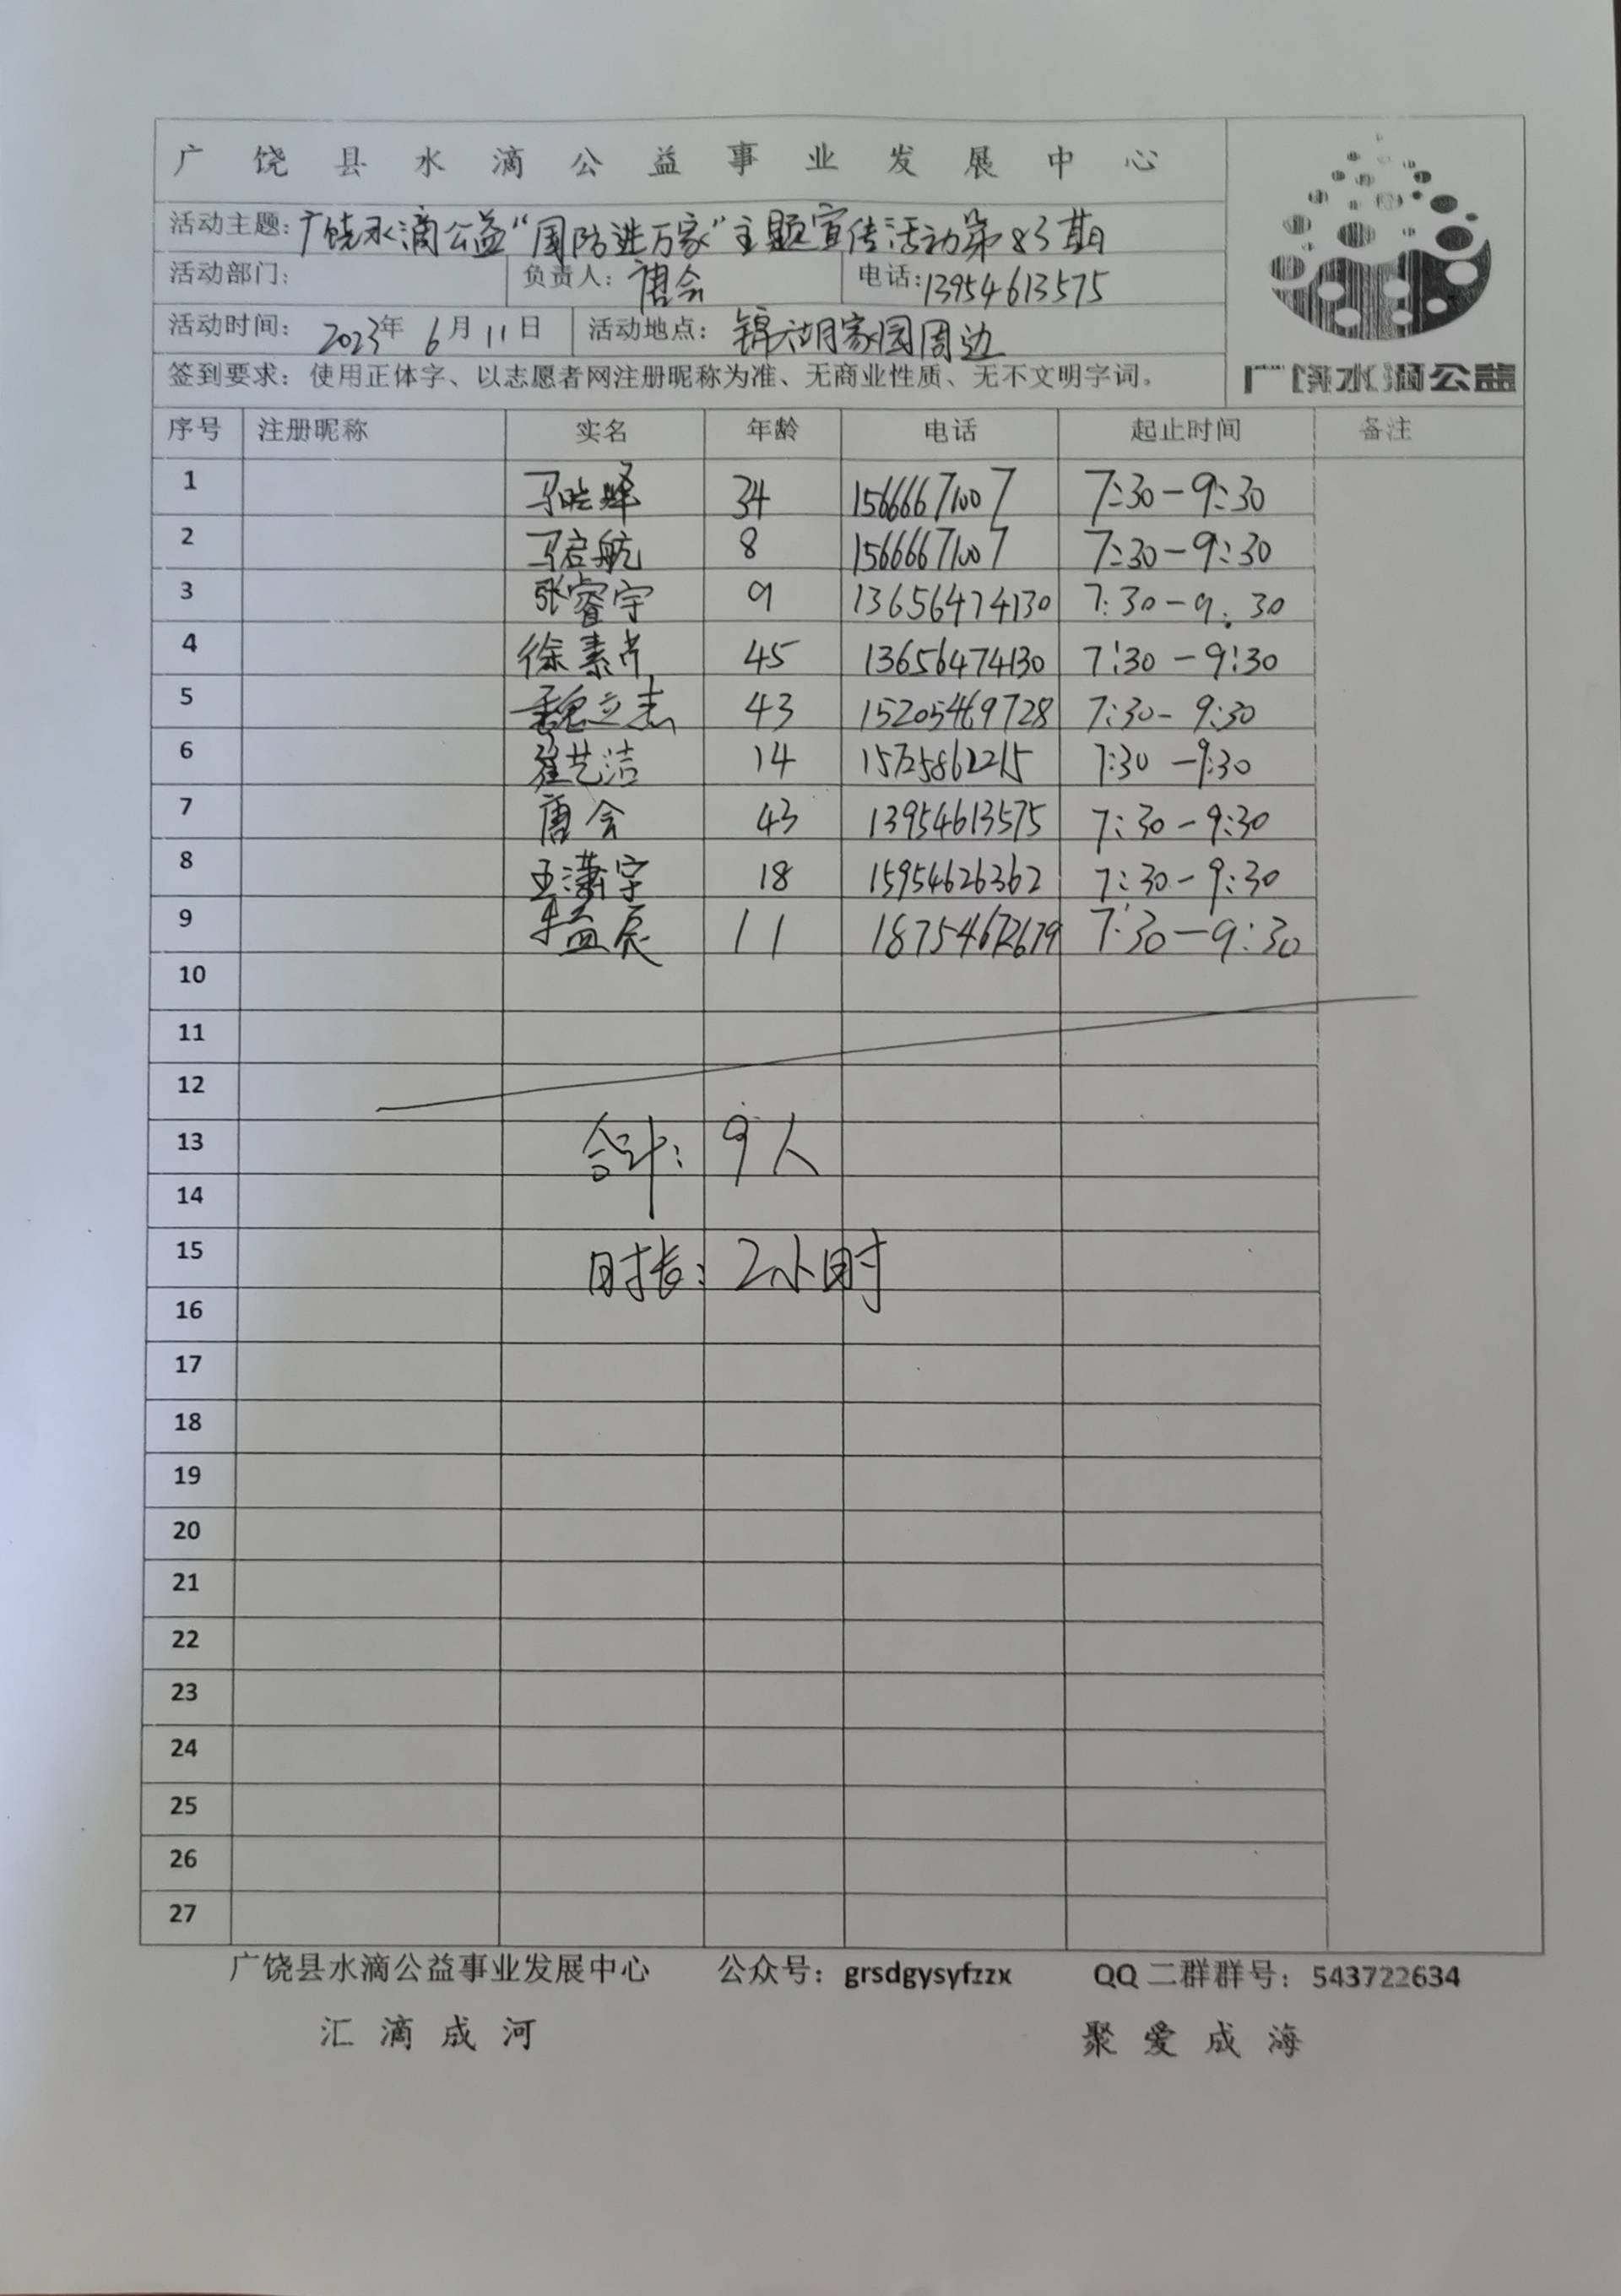 广饶县水滴公益事业发展中心
活动主题：广饶水滴公益“国防进万家”主题宣传活动第83期
活动部门： 负责人：唐会 电话：13954613575
活动时间：2023年6月11日 活动地点：锦湖家园周边
签到要求：使用正体字、以志愿者网注册昵称为准、无商业性质、无不文明字词。
广饶水滴公益
序号 注册昵称 实名 年龄 电话 起止时间 备注
1 马晓峰 34 15666671007 7:30-9:30
2 马启航 8 15666671007 7:30-9:30
3 张睿宇 9 13656474130 7:30-9:30
4 徐素芹 45 13656474130 7:30-9:30
5 魏立志 43 15205469728 7:30-9:30
6 崔艺洁 14 15725861215 7:30-9:30
7 唐会 43 13954613575 7:30-9:30
8 王潇宇 18 15954626362 7:30-9:30
9 益辰 11 18754672679 7:30-9:30
10
11
12
13 合计：9人
14
15 时长：2小时
16
17
18
19
20
21
22
23
24
25
26
27
广饶县水滴公益事业发展中心 公众号：grsdgysyfzzx QQ二群群号：543722634
汇滴成河 聚爱成海